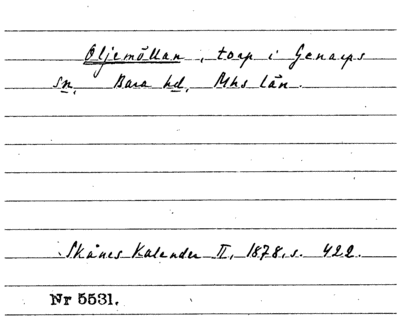 Oljemöllan, torp i Genarps
sn, Bara hd, Mhs län.
Skånes Kalender II, 1878, s. 422.
Nr 5531.